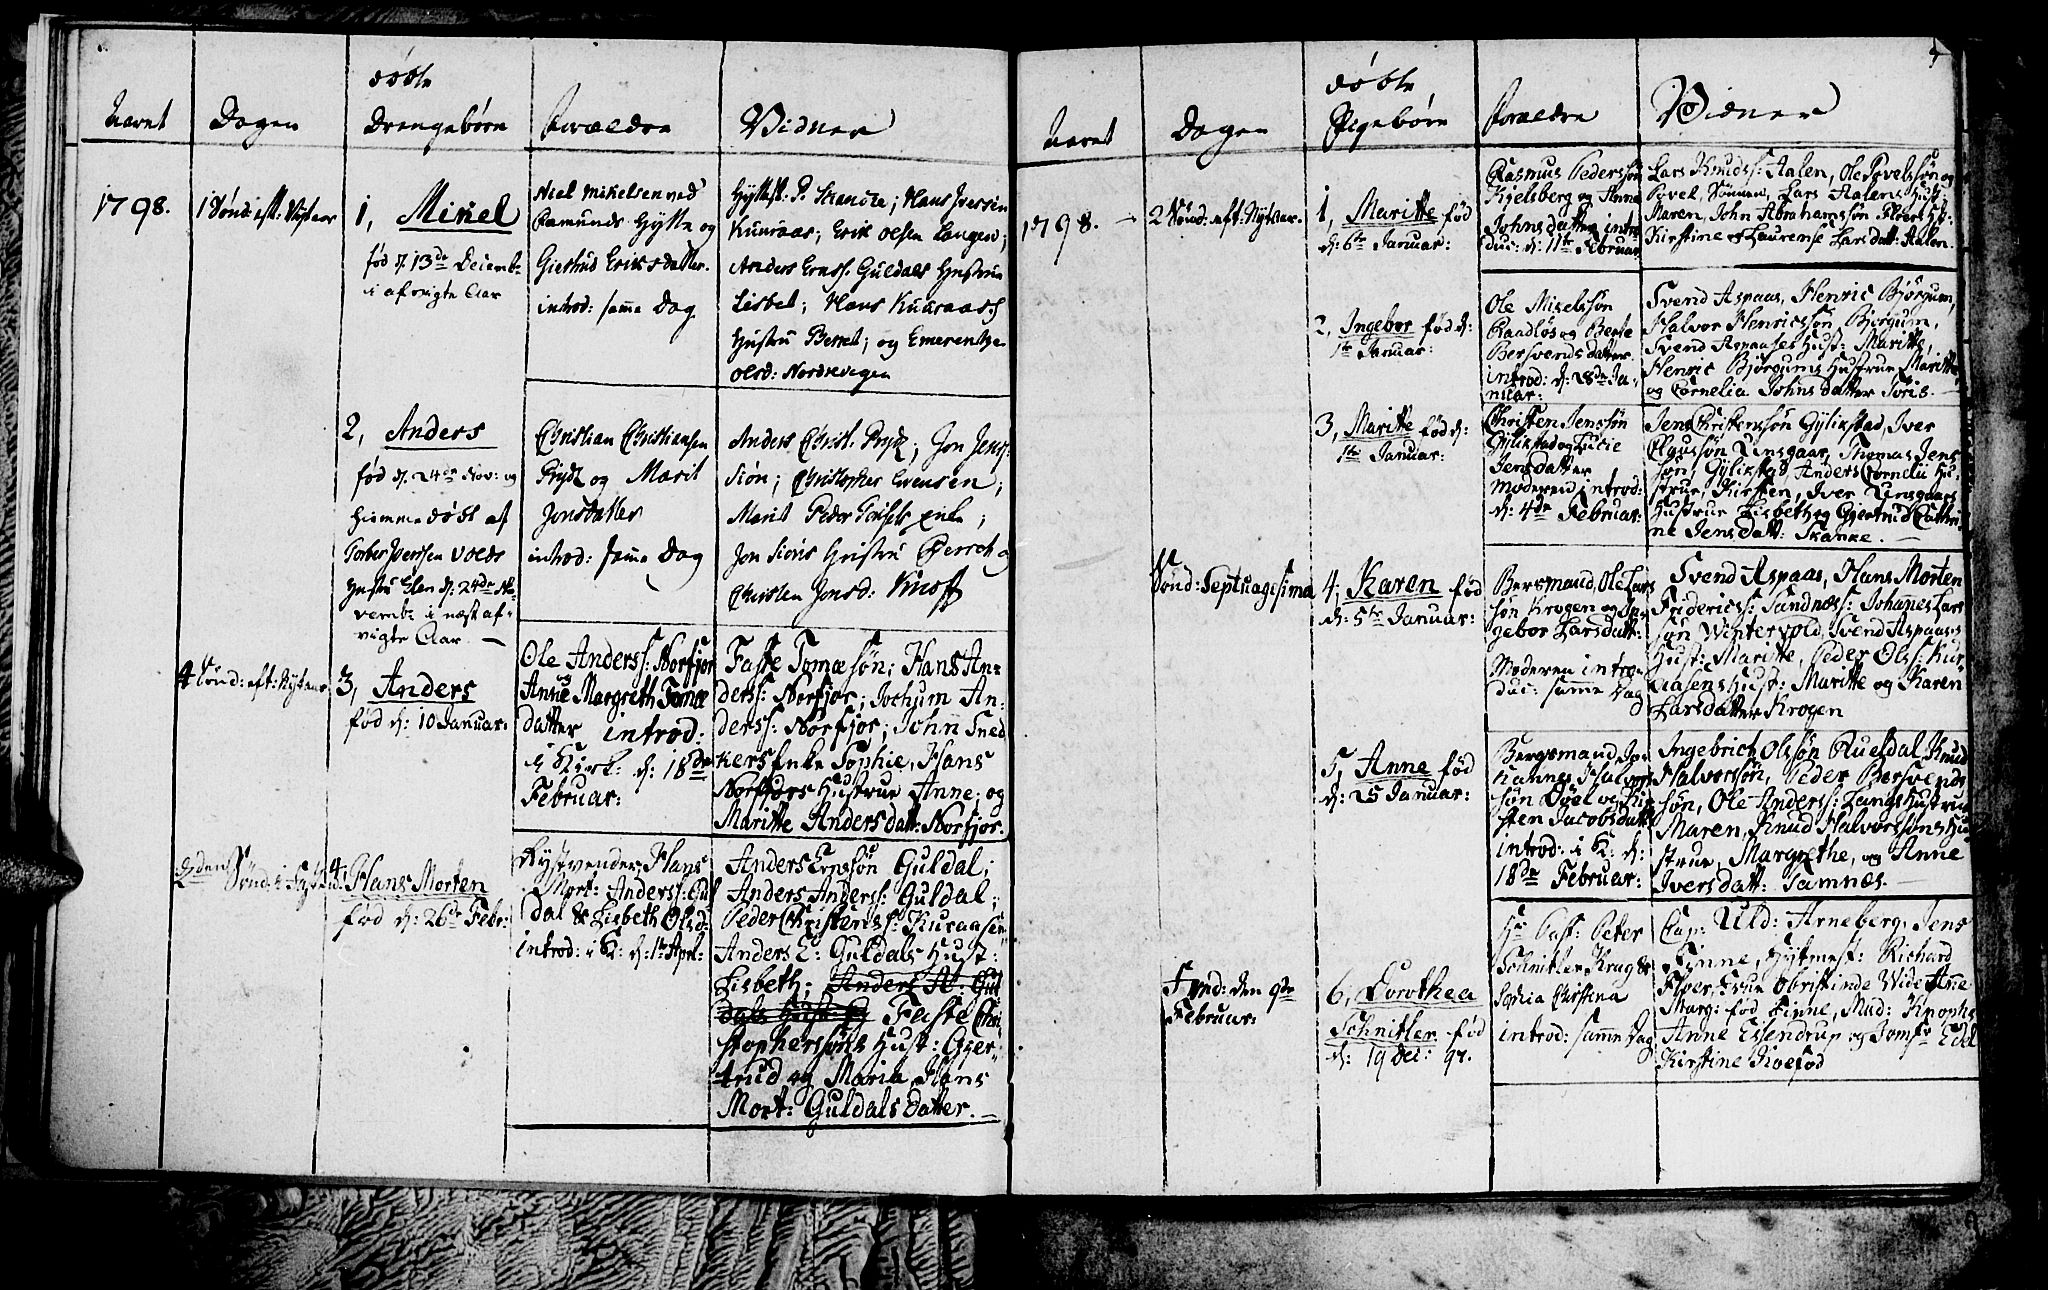 Aaret
Dagen
døbte
Drengebørn
Forældre
Vidner
1798.
1 Sönd: eft: Nytaar
1, Mikel
fød d. 13de Decemb:
i afvigte Aar
Niel Mikelsen ved
Ramunds Hytte og
Giertrud Eriksdatter.
introd: samme Dag
Hyttest. P. Skancke; Hans Iversen
Kuuraas; Erik Olsen Langen;
Anders Ernss. Guldals Hustrue
Lisbet; Hans Kuuraases
Hustru Berret; og Emerentze
Olsd: Nordvegen
2, Anders
fød d. 24de Nov: og
hiemmedøbt af
Torber Iversen Volds
Hustru Elen d: 24de No-
vemb: i næst af-
vigte Aar. —
Christian Christiansen
Prydz og Marit
Jonsdatter
introd: samme Dag
Anders Christ. Prydz; Jon Jens:
Siön; Christopher Evensen;
Marit Peder Torsets Enke;
Jon Siöns Hustru Berret og
Christen Jonsd: Knoff
4 Sönd: eft: Nytaar
3, Anders
fød d: 10 Januar:
Ole Anderss: Norfjor
og
Anne Margreth Tomæ
datter introd:
i Kirk: d: 18de
Februar:
Faste Tomæsøn; Hans An-
derss: Norfjor; Jochum An-
derss: Norfjor; John Sned
kers Enke Sophie, Hans
Norfjors Hustrue Anne; og
Maritte Andersdatt: Norfjor.
2den Sönd: i Fasted:
4, Hans Morten
fød d: 26de Febr:
Rystvender Hans
Mort: Anderss: Gul
dal & Lisbeth Olsd:
introd: i K: d: 1te Apr:
Anders Ernsøn Guldal;
Anders Anderss: Guldal;
Peder Christens: Kuraasen
Anders E: Guldals Hust:
Lisbeth; Anders A: Gul
dals Hust: og Faste Chri
stophersøns Hust: Gjer-
trud og Maria Hans
Mort: Guldals Datter. —
Aaret
Dagen
døbte
Pigebørn
Forældre
Vidner
7
1798. —
2 Sönd: eft: Nytaar.
1, Maritte fød
d: 6te Januar:
Rasmus Pedersøn
Kjelsberg og Anne
Johnsdatter intro
duc: d: 11te Februar
Lars Knuds: Aalen, Ole Povelsøn og
Povel Sønnen, Lars Aalens Hust:
Maren, John Abrahamsøn Floers Hu:
Kirstine & Laurense Larsdatt: Aalen.
2, Ingebor fød d:
1te Januar:
Ole Mikelssøn
Raadløs og Berte
Bersvendsdatter
introd: d: 28de Ja-
nuar:
Svend Aspaas, Henric Bjørgum,
Halvor Henricssøn Bjørgum,
Svend Aspaases Hust: Maritte,
Henric Bjørgums Hustrue Maritte
og Cornelia Johnsdatter Toris.
3, Maritte fød d:
1te Januar:
Christen Jenssøn
Gylikstad og Lucie
Jensdatter
Moderen introd:
d: 4de Februar:
Jens Christenssøn Gylikstad, Iver
Elgussøn Rensgaar, Thomas Jens
søn Gylikstad, Anders Cornelii Hu-
strue, Kirsten, Iver Rensgaars
Hustrue Lisbeth og Gjertrud Cathri
ne Jensdatt: Skanke. —
Sönd: Septuagesima
4, Karen fød
d: 5te Januar:
Bersmand, Ole Lars
søn Krogen og In-
gebor Larsdatt:
Moderen intro
duc: same Dag
Svend Aspaas, Hans Morten
Fridericss: Sandnæss: Johannes Lars
søn Wintervold, Svend Aspaases
Hust: Maritte, Peder Olss: Kur-
aasens Hust: Maritte og Karen
Larsdatter Krogen
5, Anne fød
d: 25 Januar:
Bergsmand Jo-
hannes Halvor
søn Døel og Kir
sten Jacobsdatt:
introd: i K: d:
18de Februar:
Ingebrich Olssøn Rueldal, Knud
Halvorssøn, Peder Bersvends
søn, Ole Anderss: Langs Hustrue
Maren, Knud Halvorssøns Hu-
strue, Margrethe, og Anne
Iversdatt: Samnæs. —
Fred: den 9de
Februar:
6, Dorothea
Schnitler fød
d: 19 Dec: 97.
Hr Past: Peter
Schnitler Krag &
Sophia Christina
introd: samme Dag
Cap: Uld: Arneberg, Jens
Finne, Hytmest: Richard
Floer, Frue Obristinde Wide Anne
Marg: fød Finne, Mad: Knophs
Anne Essendrup og Jomfr Edel
Kirstine